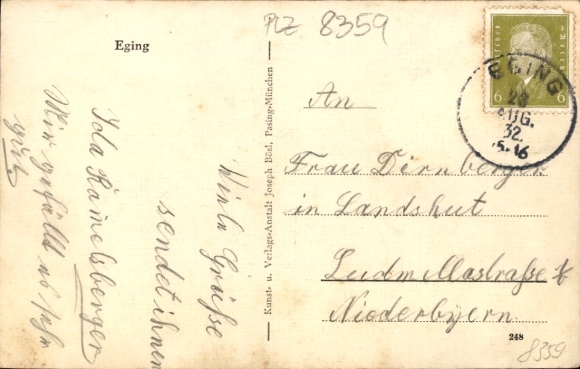 PLZ 8359
Eging
Viele Grüße
sendet ihnen
Ida
Mir gefällt es sehr
gut
Kunst- u. Verlags-Anstalt Joseph Bösl, Pasing-München
EGING
28
AUG.
32.
6
6
An
Frau Dirnberger
in Landshut
Niederbyern
248
8359